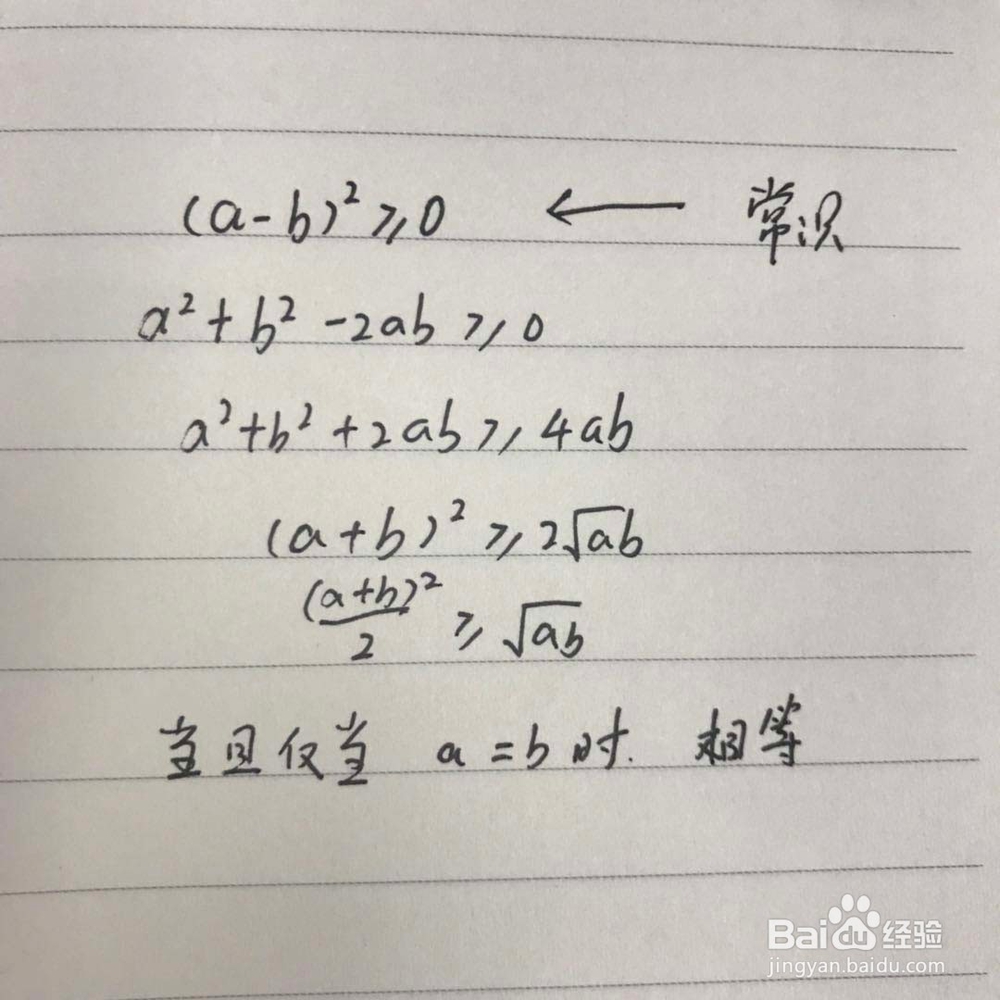 (a-b)²≥0 ← 常识
a²+b²-2ab≥0
a²+b²+2ab≥4ab
(a+b)²≥2√ab
(a+b)²/2≥√ab
当且仅当 a=b时. 相等
Baidu经验
jingyan.baidu.com